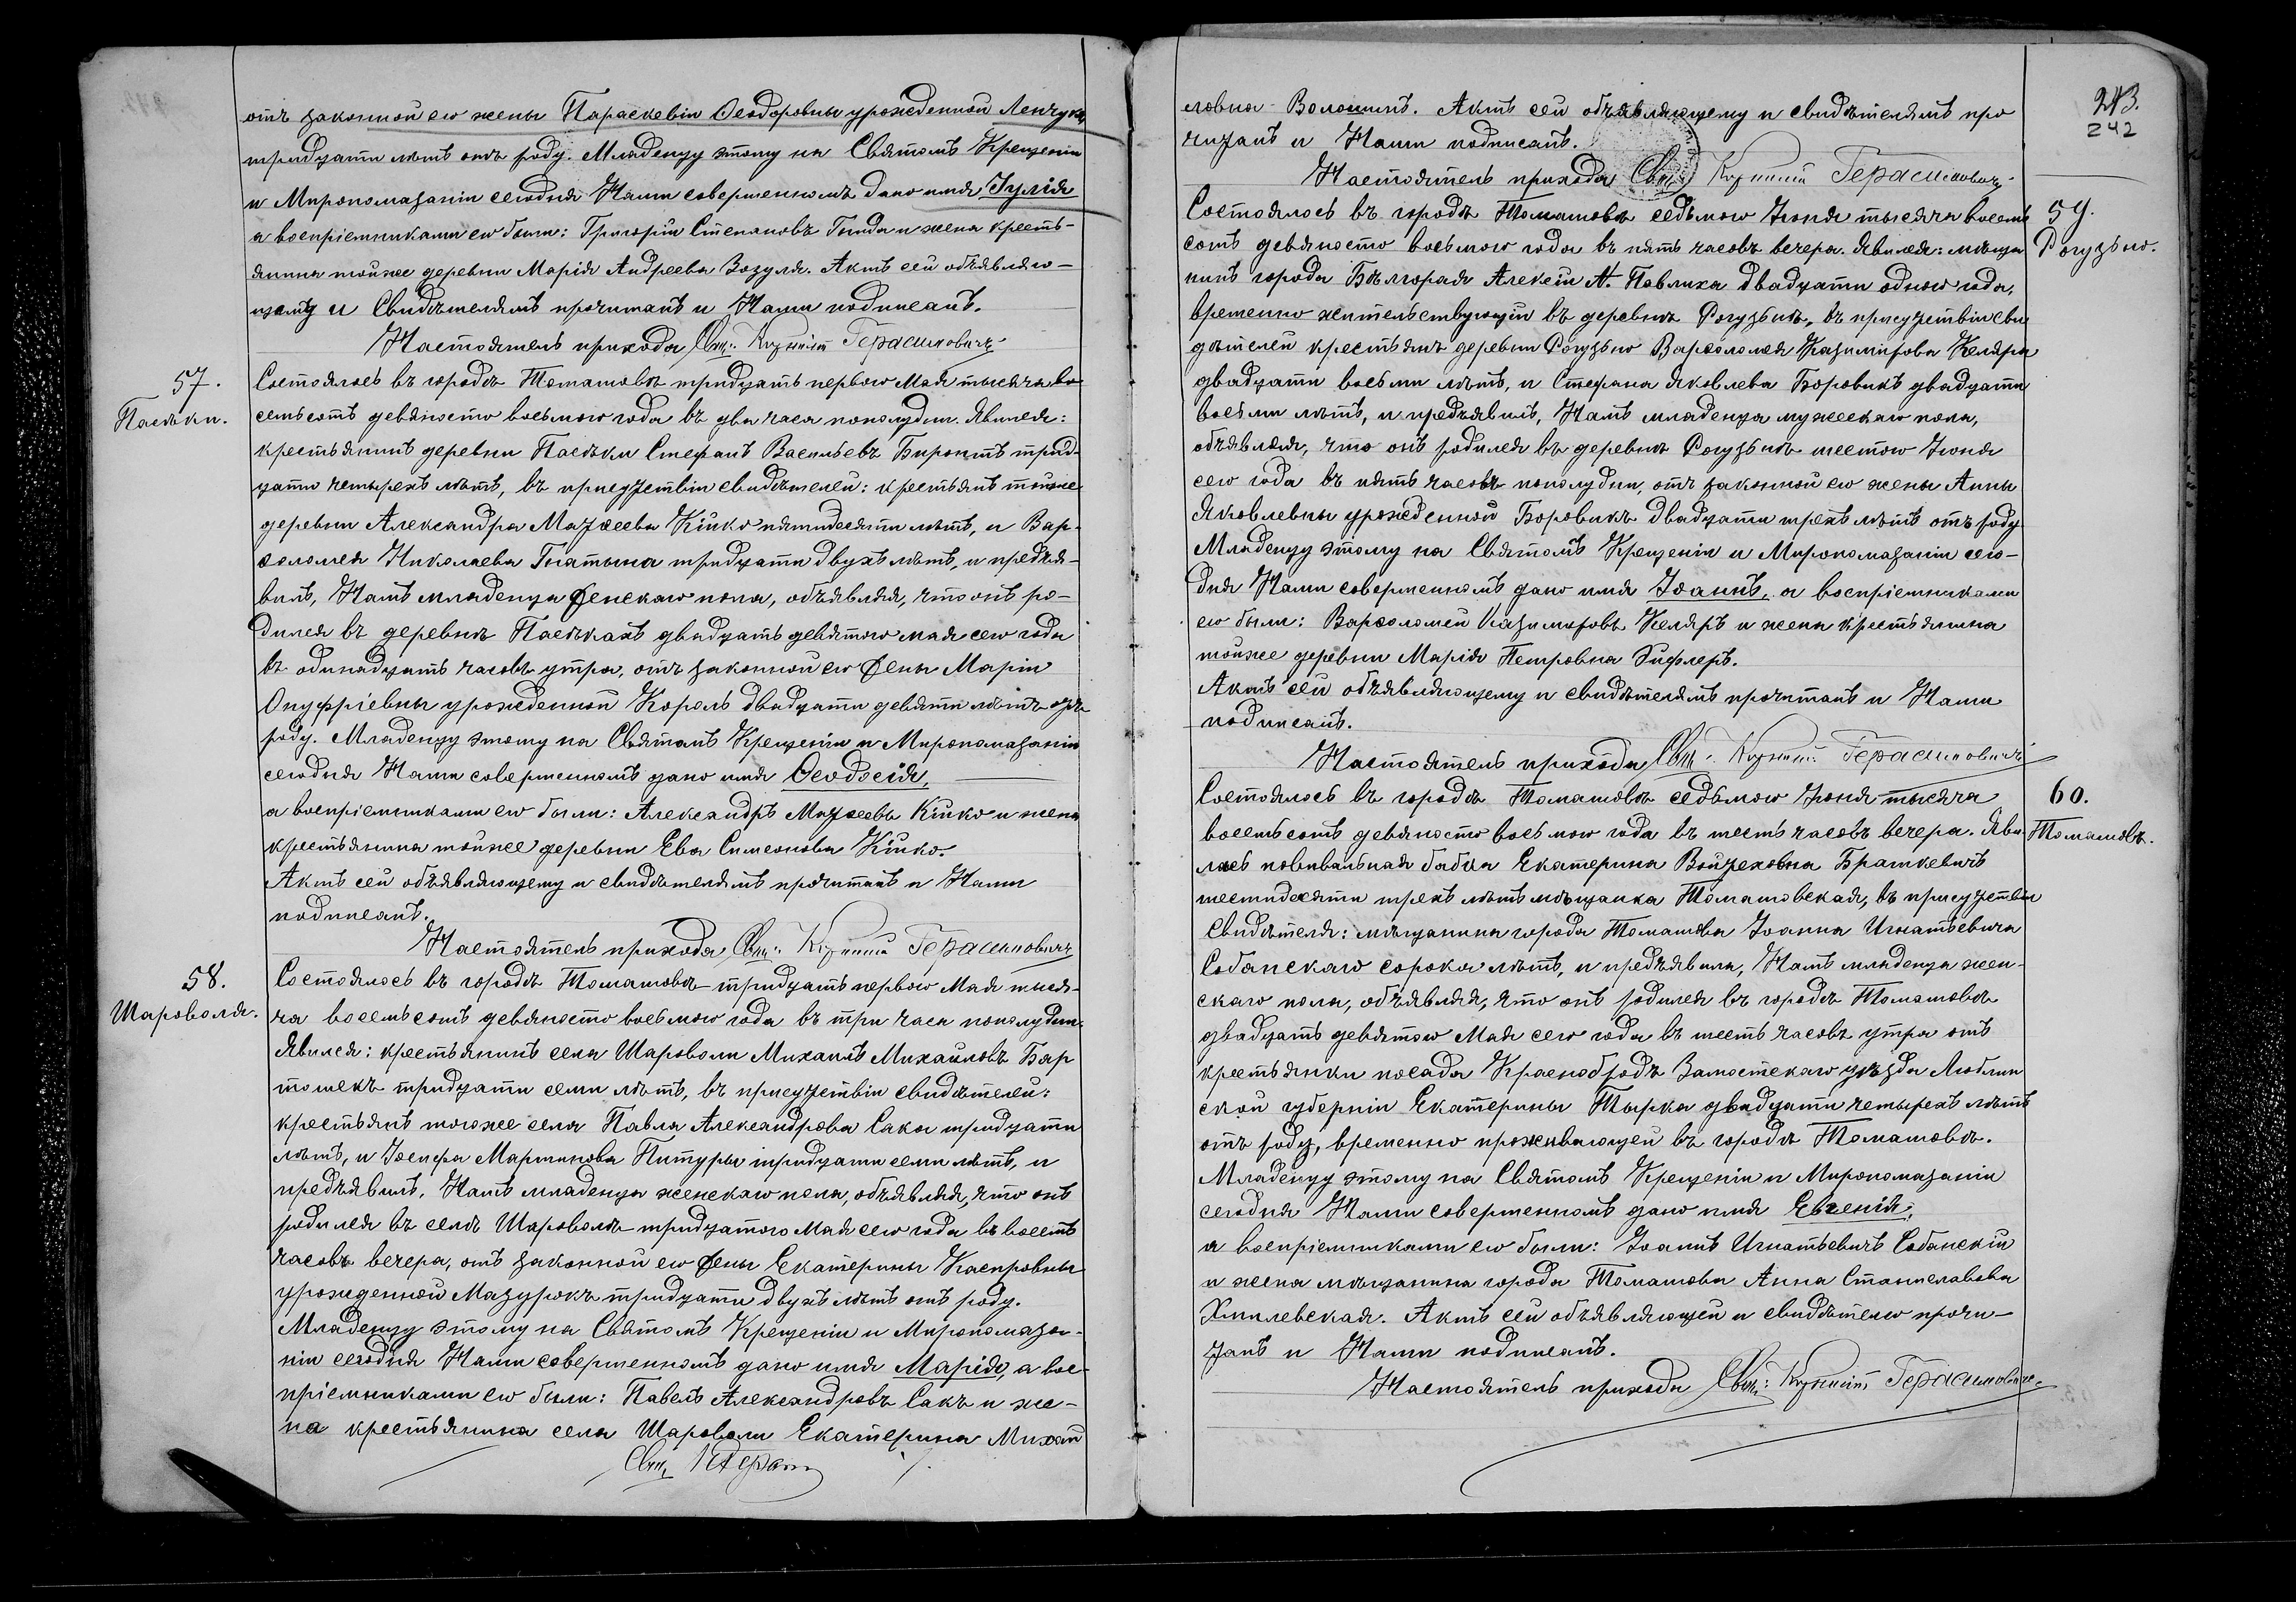 отъ законной его жены Параскевіи Ѳеодоровны урожденной Ленчукъ
тридцати лѣтъ отъ роду. Младенцу этому на Святомъ Крещеніи
и Миропомазаніи сегодня Нами совершенномъ дано имя Іулія
а воспріемниками его были: Григорій Степановъ Гнида и жена кресть-
янина тойже деревни Марія Андреева Зозуля. Актъ сей объявляю-
щему и Свидѣтелямъ прочитанъ и Нами подписанъ.
Настоятель прихода Свщ. Герасимовичъ
57.
Пасѣки.
Состоялось въ городѣ Томашовѣ тридцать перваго Мая тысяча во
семьсотъ девяносто восьмого года въ два часа пополудни. Явился:
крестьянинъ деревни Пасѣки Стефанъ Васильевъ Биронтъ трид-
цати четырехъ лѣтъ, въ присутствіи свидѣтелей: крестьянъ тойже
деревни Александра Матѳеева Кійко пятидесяти лѣтъ, и Вар-
ѳоломея Николаева Гнатына тридцати двухъ лѣтъ, и предъя-
вилъ, Намъ младенца женскаго пола, объявляя, что онъ ро-
дился въ деревнѣ Пасѣкахъ двадцать девятого мая сего года
въ одинадцать часовъ утра, отъ законной его жены Маріи
Онуфріевны урожденной Король двадцати девяти лѣтъ отъ
роду. Младенцу этому на Святомъ Крещеніи и Миропомазаніи
сегодня Нами совершенномъ дано имя Ѳеодосія,
а воспріемниками его были: Александръ Матѳеевъ Кійко и жена
крестьянина тойже деревни Ева Симеонова Кійко.
Актъ сей объявляющему и свидѣтелямъ прочитанъ и Нами
подписанъ.
Настоятель прихода Свщ. Герасимовичъ
58.
Шароволя.
Состоялось въ городѣ Томашовѣ тридцать перваго Мая тыся-
ча восемьсотъ девяносто восьмого года въ три часа пополудни.
Явился: крестьянинъ села Шароволи Михаилъ Михайловъ Бар
тошекъ тридцати семи лѣтъ, въ присутствіи свидѣтелей:
крестьянъ тогоже села Павла Александрова Сака тридцати
лѣтъ, и Іосифа Мартинова Питуры тридцати семи лѣтъ, и
предъявилъ, Намъ младенца женскаго пола, объявляя, что онъ
родился въ селѣ Шароволѣ тридцатого Мая сего года въ восемь
часовъ вечера, отъ законной его жены Екатерины Каспровны
урожденной Мазурокъ тридцати двухъ лѣтъ отъ роду.
Младенцу этому на Святомъ Крещеніи и Миропомаза-
ніи сегодня Нами совершенномъ дано имя Марія, а вос-
пріемниками его были: Павелъ Александровъ Сакъ и же-
на крестьянина села Шароволи Екатерина Михай
Свщ.
243.
242
ловна Волошинъ. Актъ сей объявляющему и свидѣтелямъ про
читанъ и Нами подписанъ.
Настоятель прихода Свщ. Герасимовичъ
59.
Рогузьно.
Состоялось въ городѣ Томашовѣ седьмого Іюня тысяча восемь
сотъ девяносто восьмого года въ пять часовъ вечера. Явился: мѣща
нинъ города Бѣлгорая Алексѣй А. Павлиха двадцати одного года,
временно жительствующій въ деревнѣ Рогузьнѣ, въ присутствіи сви
дѣтелей крестьянъ деревни Рогузьно Варѳоломея Казимирова Келяра
двадцати восьми лѣтъ, и Стефана Яковлева Боровикъ двадцати
восьми лѣтъ, и предъявилъ, Намъ младенца мужескаго пола,
объявляя, что онъ родился въ деревнѣ Рогузьнѣ шестого Іюня
сего года въ пять часовъ пополудни, отъ законной его жены Анны
Яковлевны урожденной Боровикъ двадцати трехъ лѣтъ отъ роду
Младенцу этому на Святомъ Крещеніи и Миропомазаніи сего-
дня Нами совершенномъ дано имя Іоаннъ, а воспріемниками
его были: Варѳоломей Казимировъ Келяръ и жена крестьянина
тойже деревни Марія Петровна Зифлеръ.
Актъ сей объявляющему и свидѣтелямъ прочитанъ и Нами
подписанъ.
Настоятель прихода Свщ. Герасимовичъ
60.
Томашовъ.
Состоялось въ городѣ Томашовѣ седьмого Іюня тысяча
восемьсотъ девяносто восьмого года въ шесть часовъ вечера. Яви-
лась повивальная бабка Екатерина Войцеховна Браткевичъ
шестидесяти трехъ лѣтъ мѣщанка Томашовская, въ присутствіи
Свидѣтеля: мѣщанина города Томашова Іоанна Игнатьевича
Собанскаго сорока лѣтъ, и предъявила, Намъ младенца жен-
скаго пола, объявляя, что онъ родился въ городѣ Томашовѣ
двадцать девятого Мая сего года въ шесть часовъ утра отъ
крестьянки посада Краснобродъ Замостскаго уѣзда Люблин
ской губерніи Екатерины Тырка двадцати четырехъ лѣтъ
отъ роду, временно проживающей въ городѣ Томашовѣ.
Младенцу этому на Святомъ Крещеніи и Миропомазаніи
сегодня Нами совершенномъ дано имя Евгенія,
а воспріемниками его были: Іоаннъ Игнатьевичъ Собанскій
и жена мѣщанина города Томашова Анна Станиславова
Хмилевская. Актъ сей объявляющей и свидѣтелю прочи-
танъ и Нами подписанъ.
Настоятель прихода Свщ. Герасимовичъ